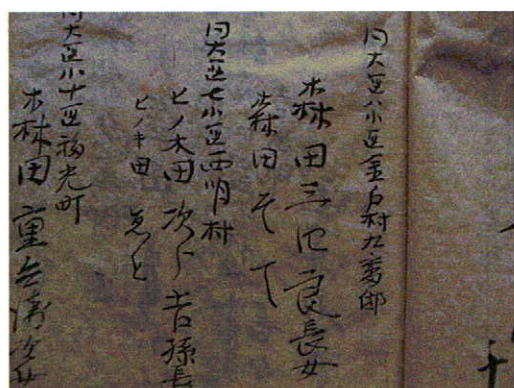 同大区八小区金戸村九番邸
森田三四良長女
森田そて
同大区七小区西明村
ヒノ木田次郎吉孫長
ヒノキ田
同大区小十区福光町
森田重兵衛次女